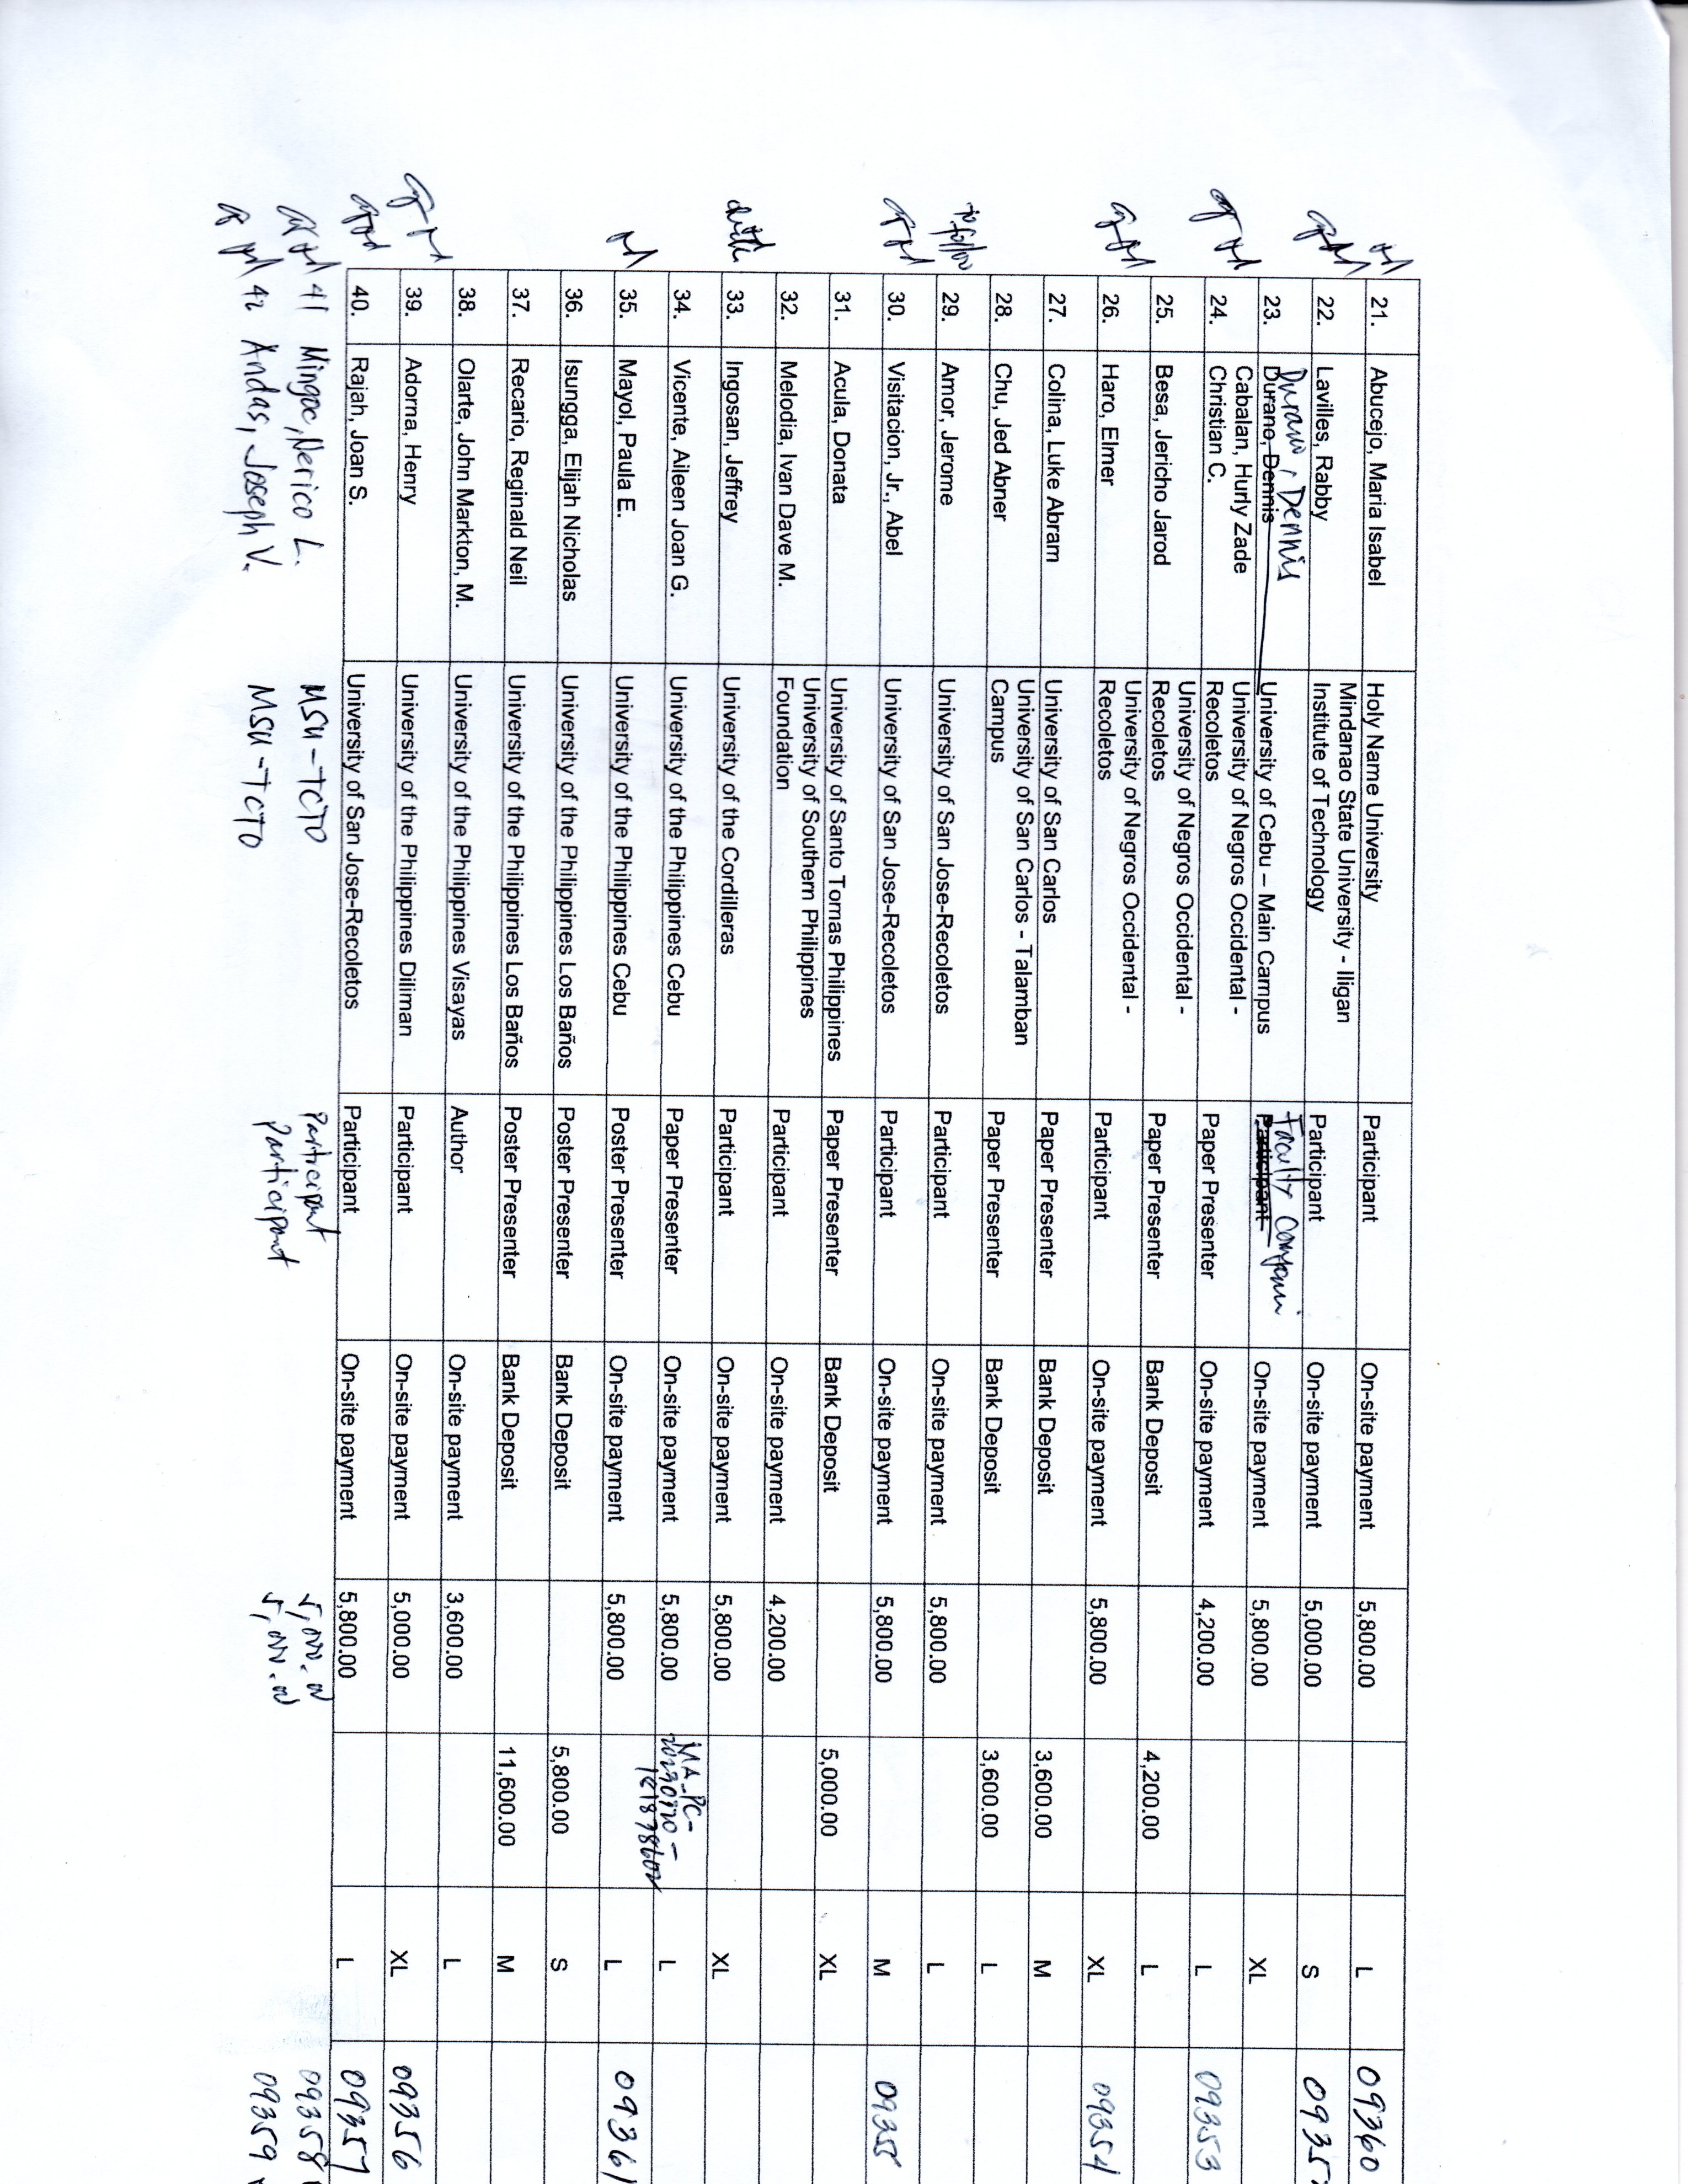 21. Abucejo, Maria Isabel Holy Name University Participant On-site payment 5,800.00 L 09360
22. Lavilles, Rabby Mindanao State University - Iligan
Institute of Technology Participant On-site payment 5,000.00 S
Durano, Dennis Faculty
23. Durano, Dennis University of Cebu – Main Campus Participant On-site payment 5,800.00 XL
24. Cabalan, Hurly Zade
Christian C. University of Negros Occidental -
Recoletos Paper Presenter On-site payment 4,200.00 L 09353
25. Besa, Jericho Jarod University of Negros Occidental -
Recoletos Paper Presenter Bank Deposit 4,200.00 L
26. Haro, Elmer University of Negros Occidental -
Recoletos Participant On-site payment 5,800.00 XL 09354
27. Colina, Luke Abram University of San Carlos Paper Presenter Bank Deposit 3,600.00 M
28. Chu, Jed Abner University of San Carlos - Talamban
Campus Paper Presenter Bank Deposit 3,600.00 L
29. Amor, Jerome University of San Jose-Recoletos Participant On-site payment 5,800.00 L
30. Visitacion, Jr., Abel University of San Jose-Recoletos Participant On-site payment 5,800.00 M 09355
31. Acula, Donata University of Santo Tomas Philippines Paper Presenter Bank Deposit 5,000.00 XL
32. Melodia, Ivan Dave M. University of Southern Philippines
Foundation Participant On-site payment 4,200.00
33. Ingosan, Jeffrey University of the Cordilleras Participant On-site payment 5,800.00 XL
34. Vicente, Aileen Joan G. University of the Philippines Cebu Paper Presenter On-site payment 5,800.00 MA-PC- L
35. Mayol, Paula E. University of the Philippines Cebu Poster Presenter On-site payment 5,800.00 L 09361
36. Isungga, Elijah Nicholas University of the Philippines Los Baños Poster Presenter Bank Deposit 5,800.00 S
37. Recario, Reginald Neil University of the Philippines Los Baños Poster Presenter Bank Deposit 11,600.00 M
38. Olarte, John Markton, M. University of the Philippines Visayas Author On-site payment 3,600.00 L
39. Adorna, Henry University of the Philippines Diliman Participant On-site payment 5,000.00 XL 09356
40. Rajah, Joan S. University of San Jose-Recoletos Participant On-site payment 5,800.00 L 09357
41 Mingoc, Nerico L. MSU-TCTO Participant 5,000.00 09358
42 Andas, Joseph V. MSU-TCTO Participant 5,000.00 09359